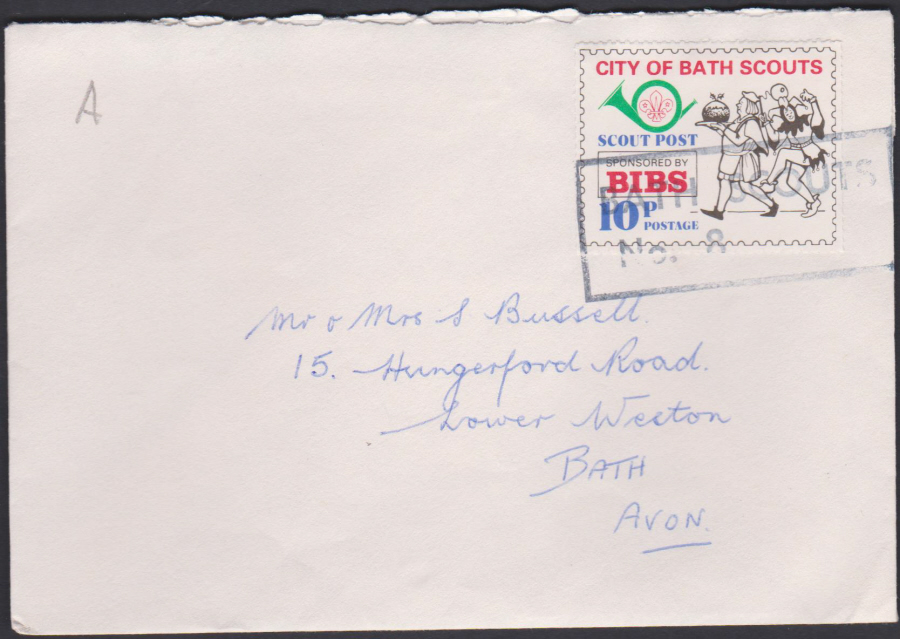 A
CITY OF BATH SCOUTS
SCOUT POST
SPONSORED BY
BIBS
10P
POSTAGE
BATH SCOUTS
No. 8
Mr & Mrs S Bussell.
15. Hungerford Road.
Lower Weston
BATH
AVON.